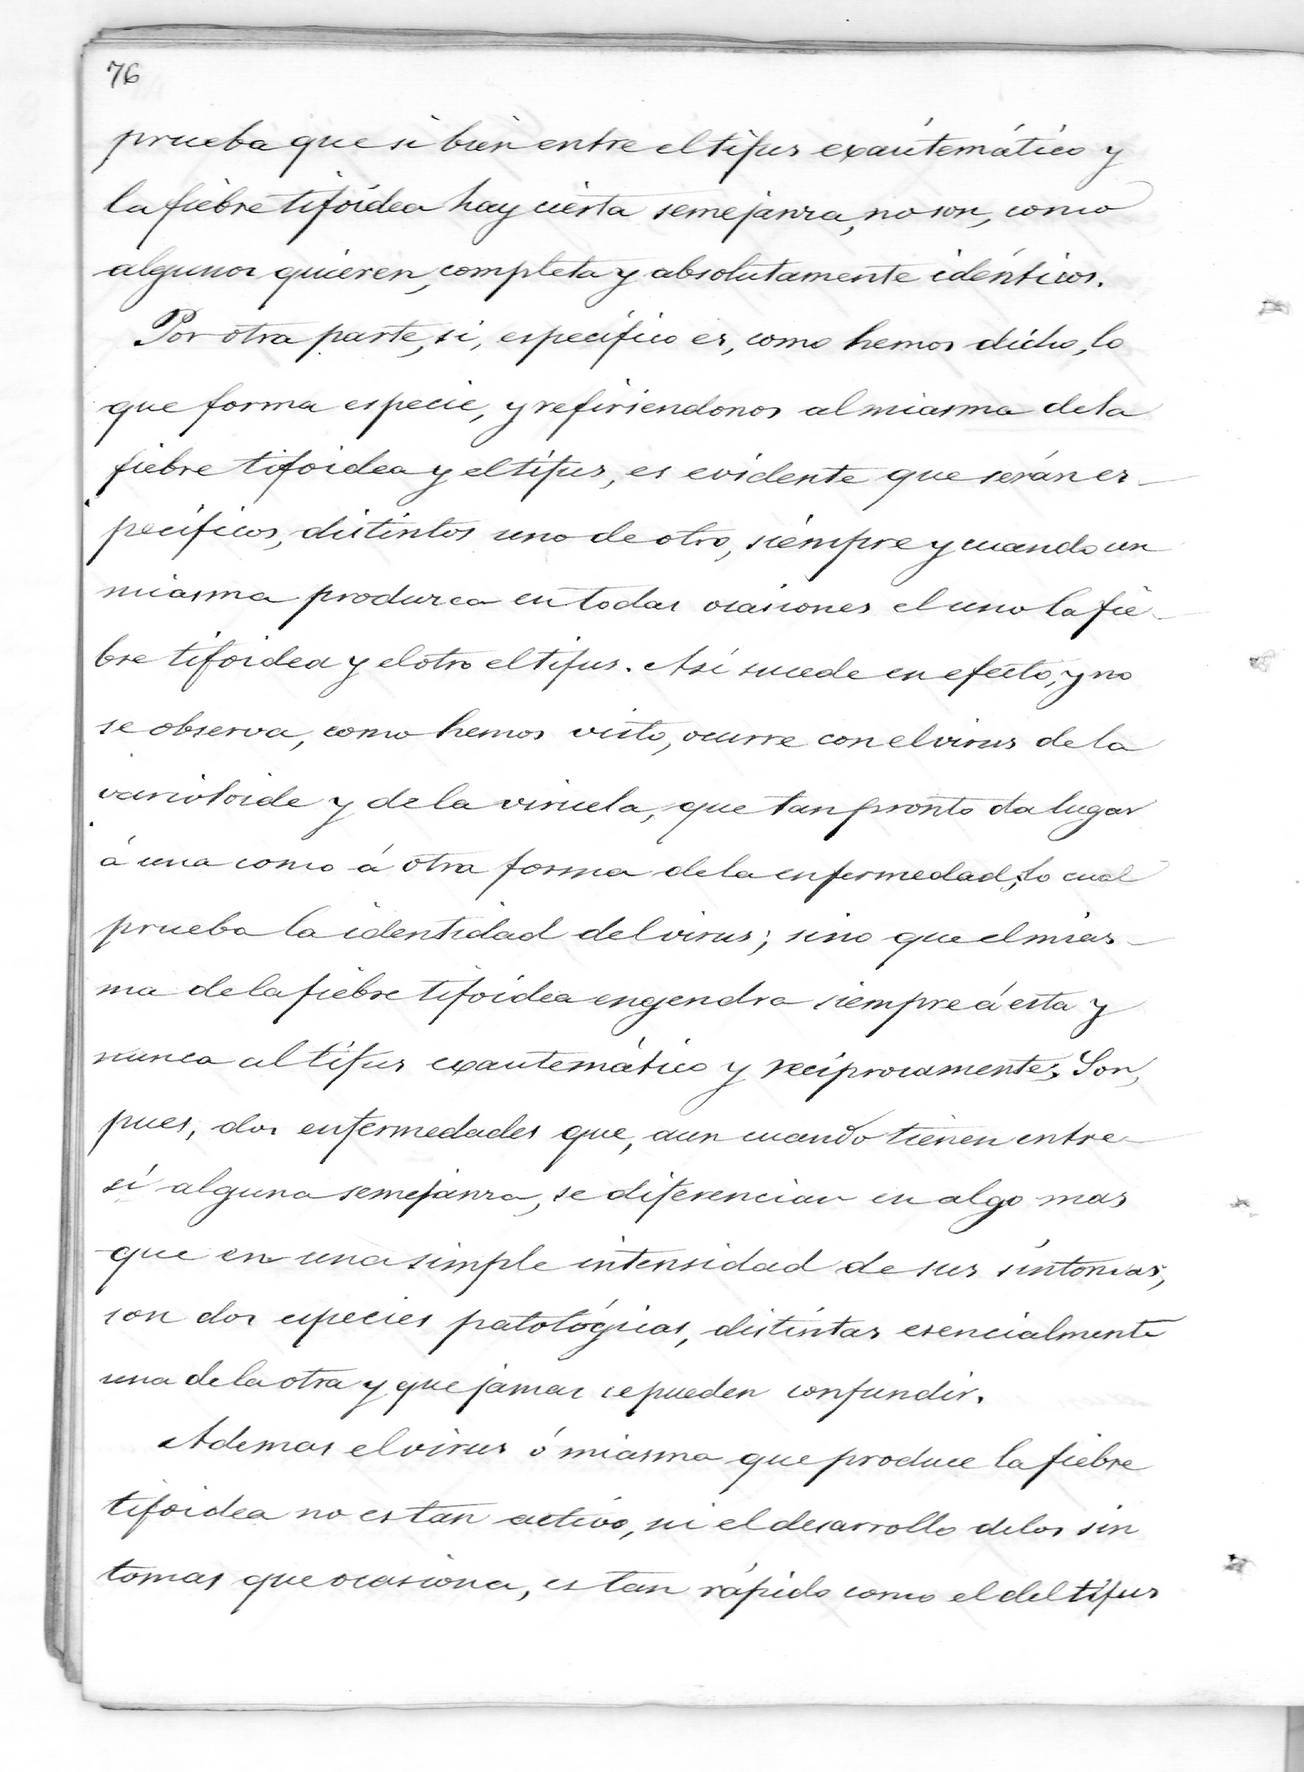 76
prueba que si bien entre el tifus exantemático y
la fiebre tifoidea hay cierta semejanza, no son, como
algunos quieren, completa y absolutamente idénticos.
Por otra parte, si, específico es, como hemos dicho, lo
que forma especie, y refiriendonos al miasma de la
fiebre tifoidea y el tifus, es evidente que serán es-
pecíficos, distintos uno de otro, siempre y cuando un
miasma produzca en todas ocasiones el uno la fie-
bre tifoidea y el otro el tifus. Así sucede en efecto, y no
se observa, como hemos visto, ocurre con el virus de la
varioloide y de la viruela, que tan pronto da lugar
á una como á otra forma de la enfermedad, lo cual
prueba la identidad del virus; sino que el mias-
ma de la fiebre tifoidea engendra siempre á esta y
nunca al tifus exantemático y reciprocamente. Son,
pues, dos enfermedades que, aun cuando tienen entre
sí alguna semejanza, se diferencian en algo mas
que en una simple intensidad de sus síntomas,
son dos especies patológicas, distintas esencialmente
una de la otra y que jamas se pueden confundir.
Ademas el virus ó miasma que produce la fiebre
tifoidea no es tan activo, ni el desarrollo de los sin
tomas que ocasiona, es tan rápido como el del tifus